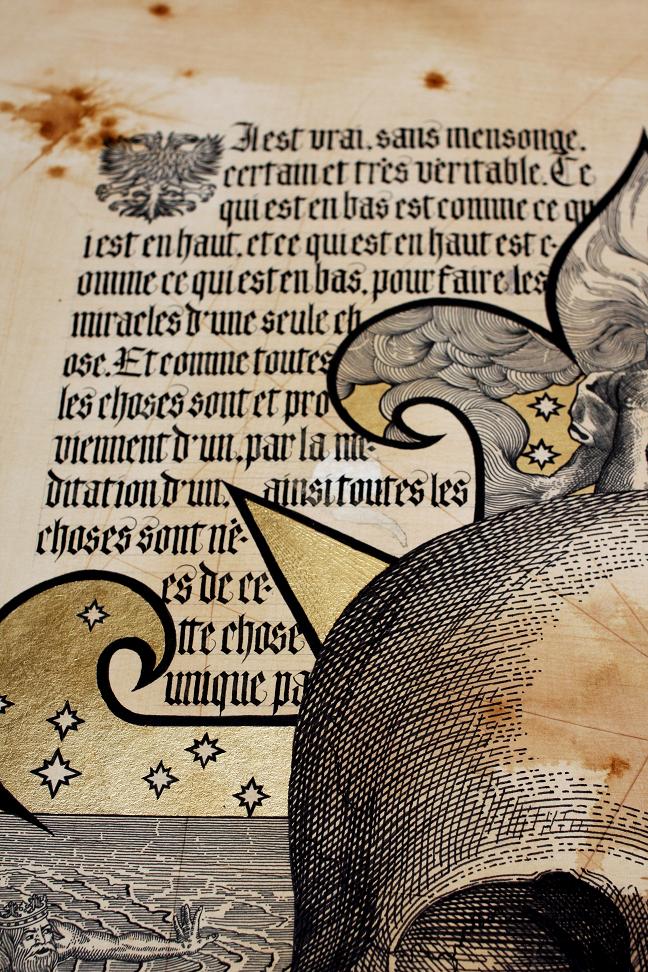 Il est vrai. sans mensonge.
certain et très vèritable. Ce
qui est en bas est comme ce qu
i est en haut. et ce qui est en haut est c-
omme ce qui est en bas. pour faire les
miracles d'une seule ch
ose. Et comme toutes
les choses sont et pro
viennent d'un. par la mé-
ditation d'un. ainsi toutes les
choses sont nè-
es de ce-
tte chose
unique pa